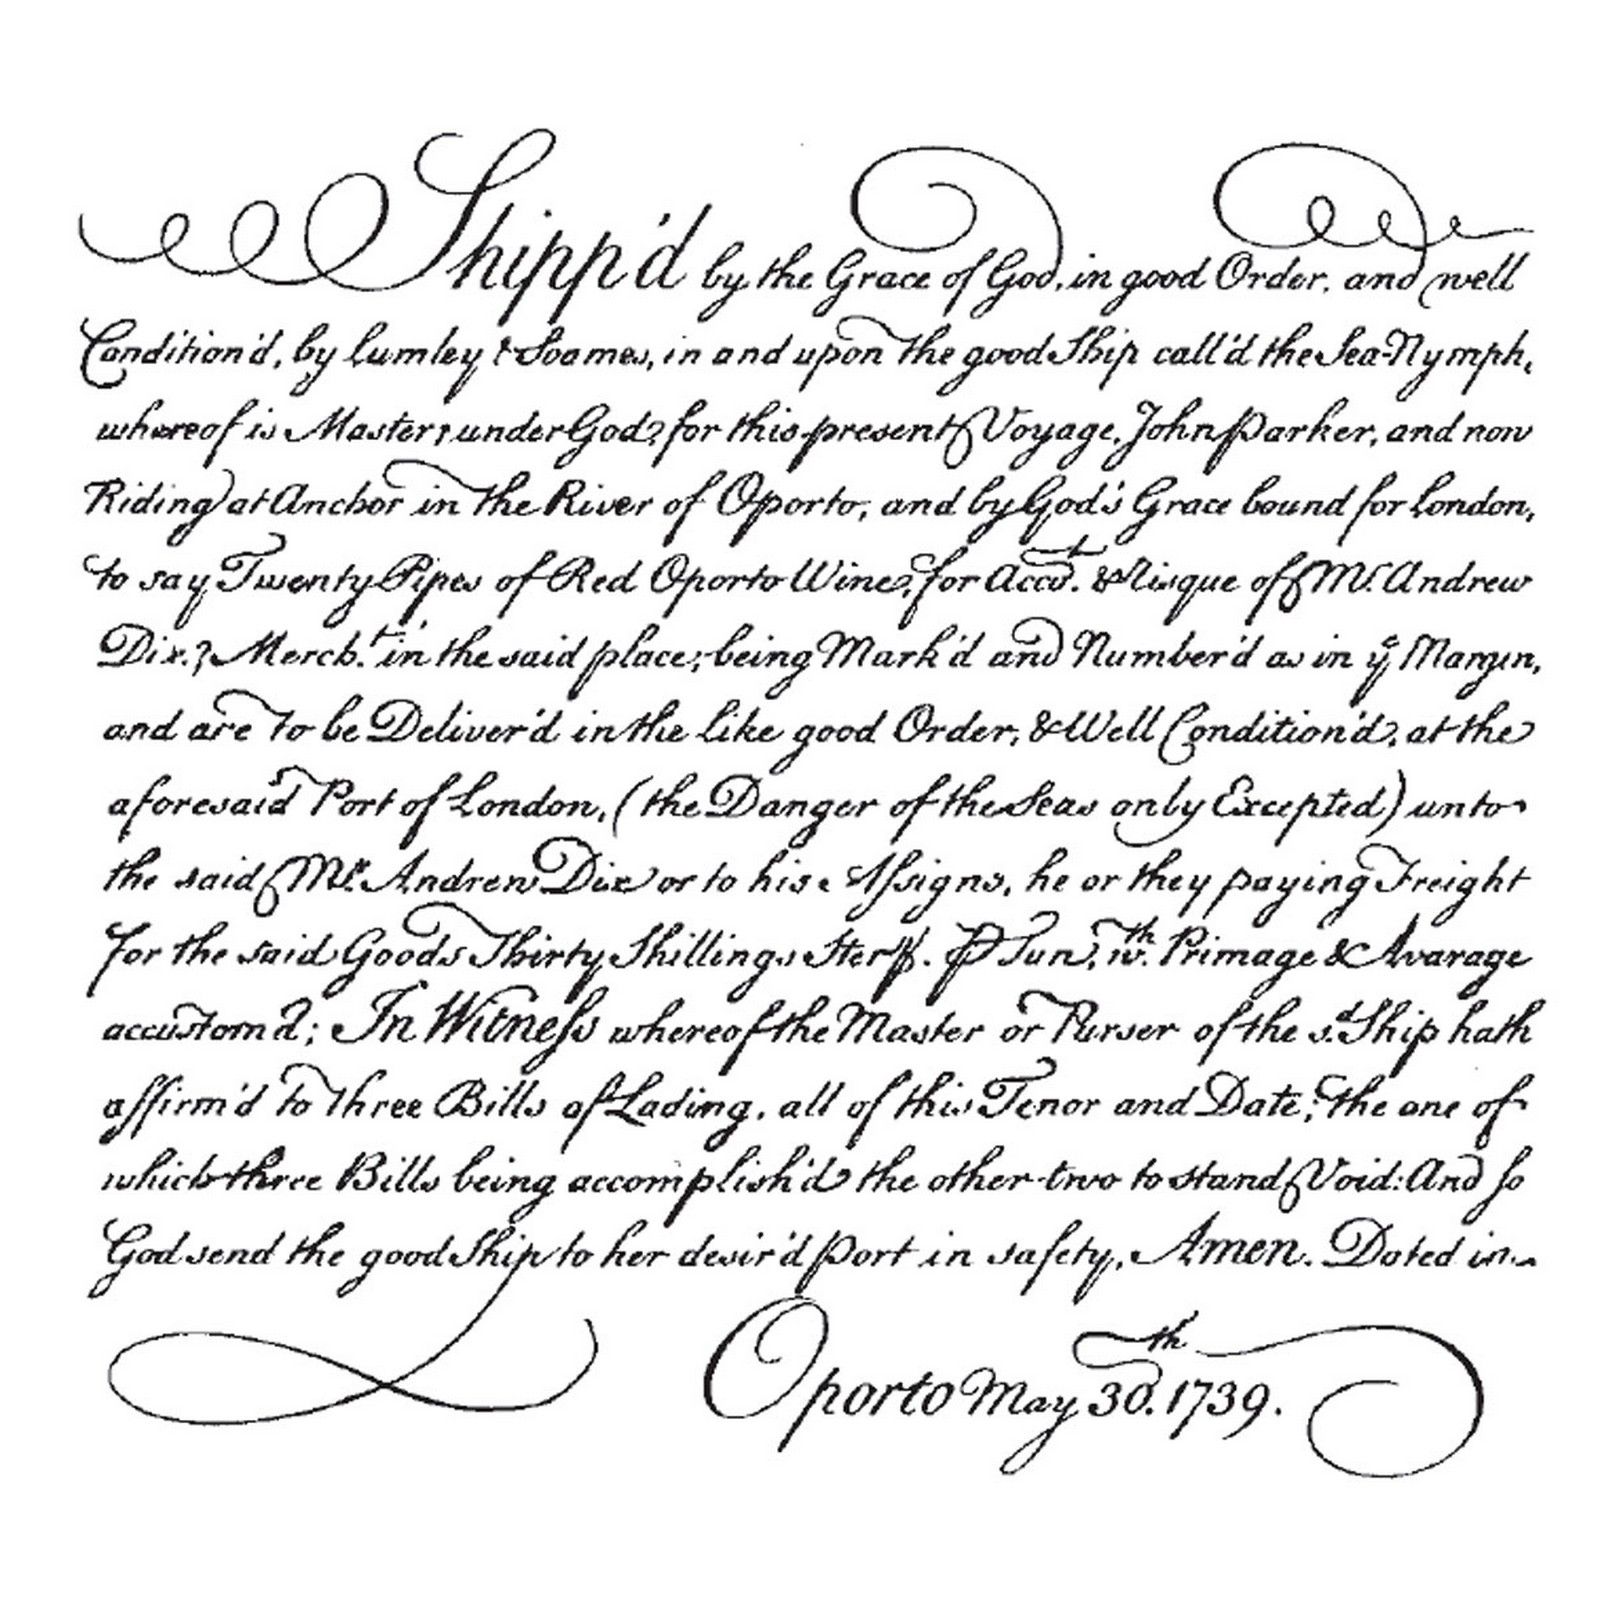 Shipp'd by the Grace of God, in good Order, and well
Condition'd, by Lumley & Soames, in and upon the good Ship call'd the Sea-Nymph,
whereof is Master, under God, for this present Voyage, John Parker, and now
Riding at Anchor in the River of Oporto, and by God's Grace bound for London,
to say, Twenty Pipes of Red Oporto Wine, for Acco.t & Risque of Mr. Andrew
Dix, Merch.t in the said place; being Mark'd and Number'd as in ye Margin,
and are to be Deliver'd in the like good Order, & Well Condition'd, at the
aforesaid Port of London, (the Danger of the Seas only Excepted) unto
the said Mr. Andrew Dix or to his Assigns, he or they paying Freight
for the said Goods Thirty Shillings Ster. ⅌ Tun, wth. Primage & Avarage
accustom'd; In Witness whereof the Master or Purser of the s.d Ship hath
affirm'd to three Bills of Lading, all of this Tenor and Date; the one of
which three Bills being accomplish'd the other two to stand Void: And so
God send the good Ship to her desir'd Port in safety, Amen. Dated in
Oporto May 30.th 1739.